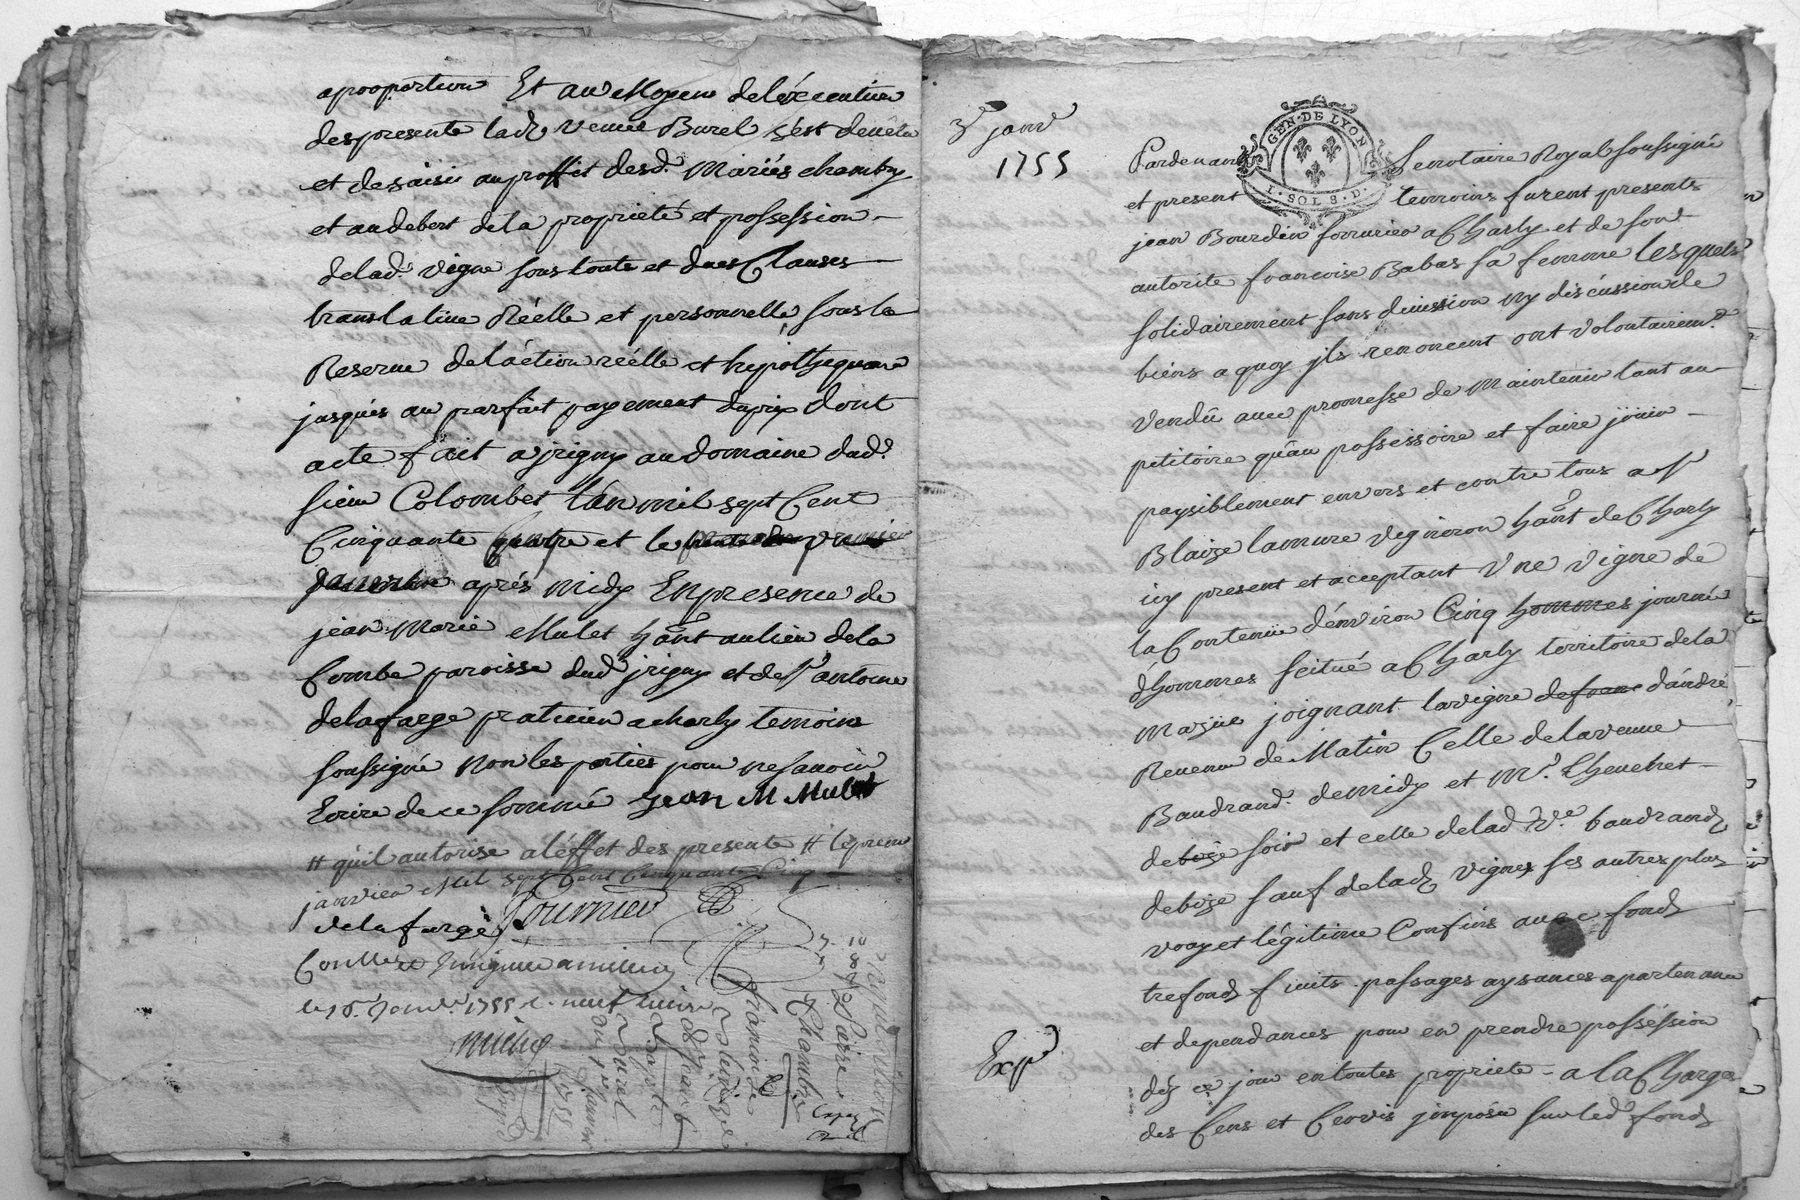 aproportion Et au Moyen deléxecution
des presente lade veuve Burel s'est devétu
et desaisie au proffit desd. Mariés chambry
et audebert dela proprieté et possession
delad. vigne sous toute et dues Clauses
translative Réelle et personnelle sous la
Reserve del'áction réélle et hipothequaire
jusqués au parfait payement duprix dont
acte fait a jrigny au domaine dud.
sieur Colombet l'an mil sept Cent
Cinquante quatre et le
aprés midy En presence de
jean Marie Mulet hânt au lieu dela
Combe paroisse dud jrigny et de sr antoine
delafarge praticien acharly temoins
soussigné Non les parties pour ne savoir
Ecrire de ce sommé jean M Mulet
# quil autorise aléffet des presente # le premier
janvier Mil sept Cent Cinquante Cinq
delafarge Fournier
Conllé et Insinué a millery
le 16. Janv. 1755 r. neuf livre
3e janv
1755
GEN·DE LYON
I·SOL 8·D.
Pardevant Le notaire Royal soussigné
et present temoins furent presents
jean Bourdin aCharly et de son
autorite francoise Babas sa femme lesquels
solidairement sans division Ny discussion de
biens a quoy jls renoncent ont volontairemt
Vendû avec promesse de Maintenir tant au
petitoire qu'au possessoire et faire joüir
paysiblement envers et contre tous a sr
Blaize lamure vigneron hânt de Charly
icy present et acceptant Vne vigne de
la Contenüe d'énviron Cinq hommes journé
d'hommes scitué aCharly territoire dela
Mazüe joignant lavigne d'andré
Revenu de Matin Celle delaveuve
Baudrand. demidy et Mr. Chevchet
debize soir et celle delad Ve. baudrand
debize sauf delad vignes ses autres plus
vray et légitime Confins avec fond
trefond fruits passages aysances apartenance
et dependances pour en prendre posséssion
déz ce jour entoutes propriete a la Charge
des Cens et Servis jmposés sur led fond
Exp